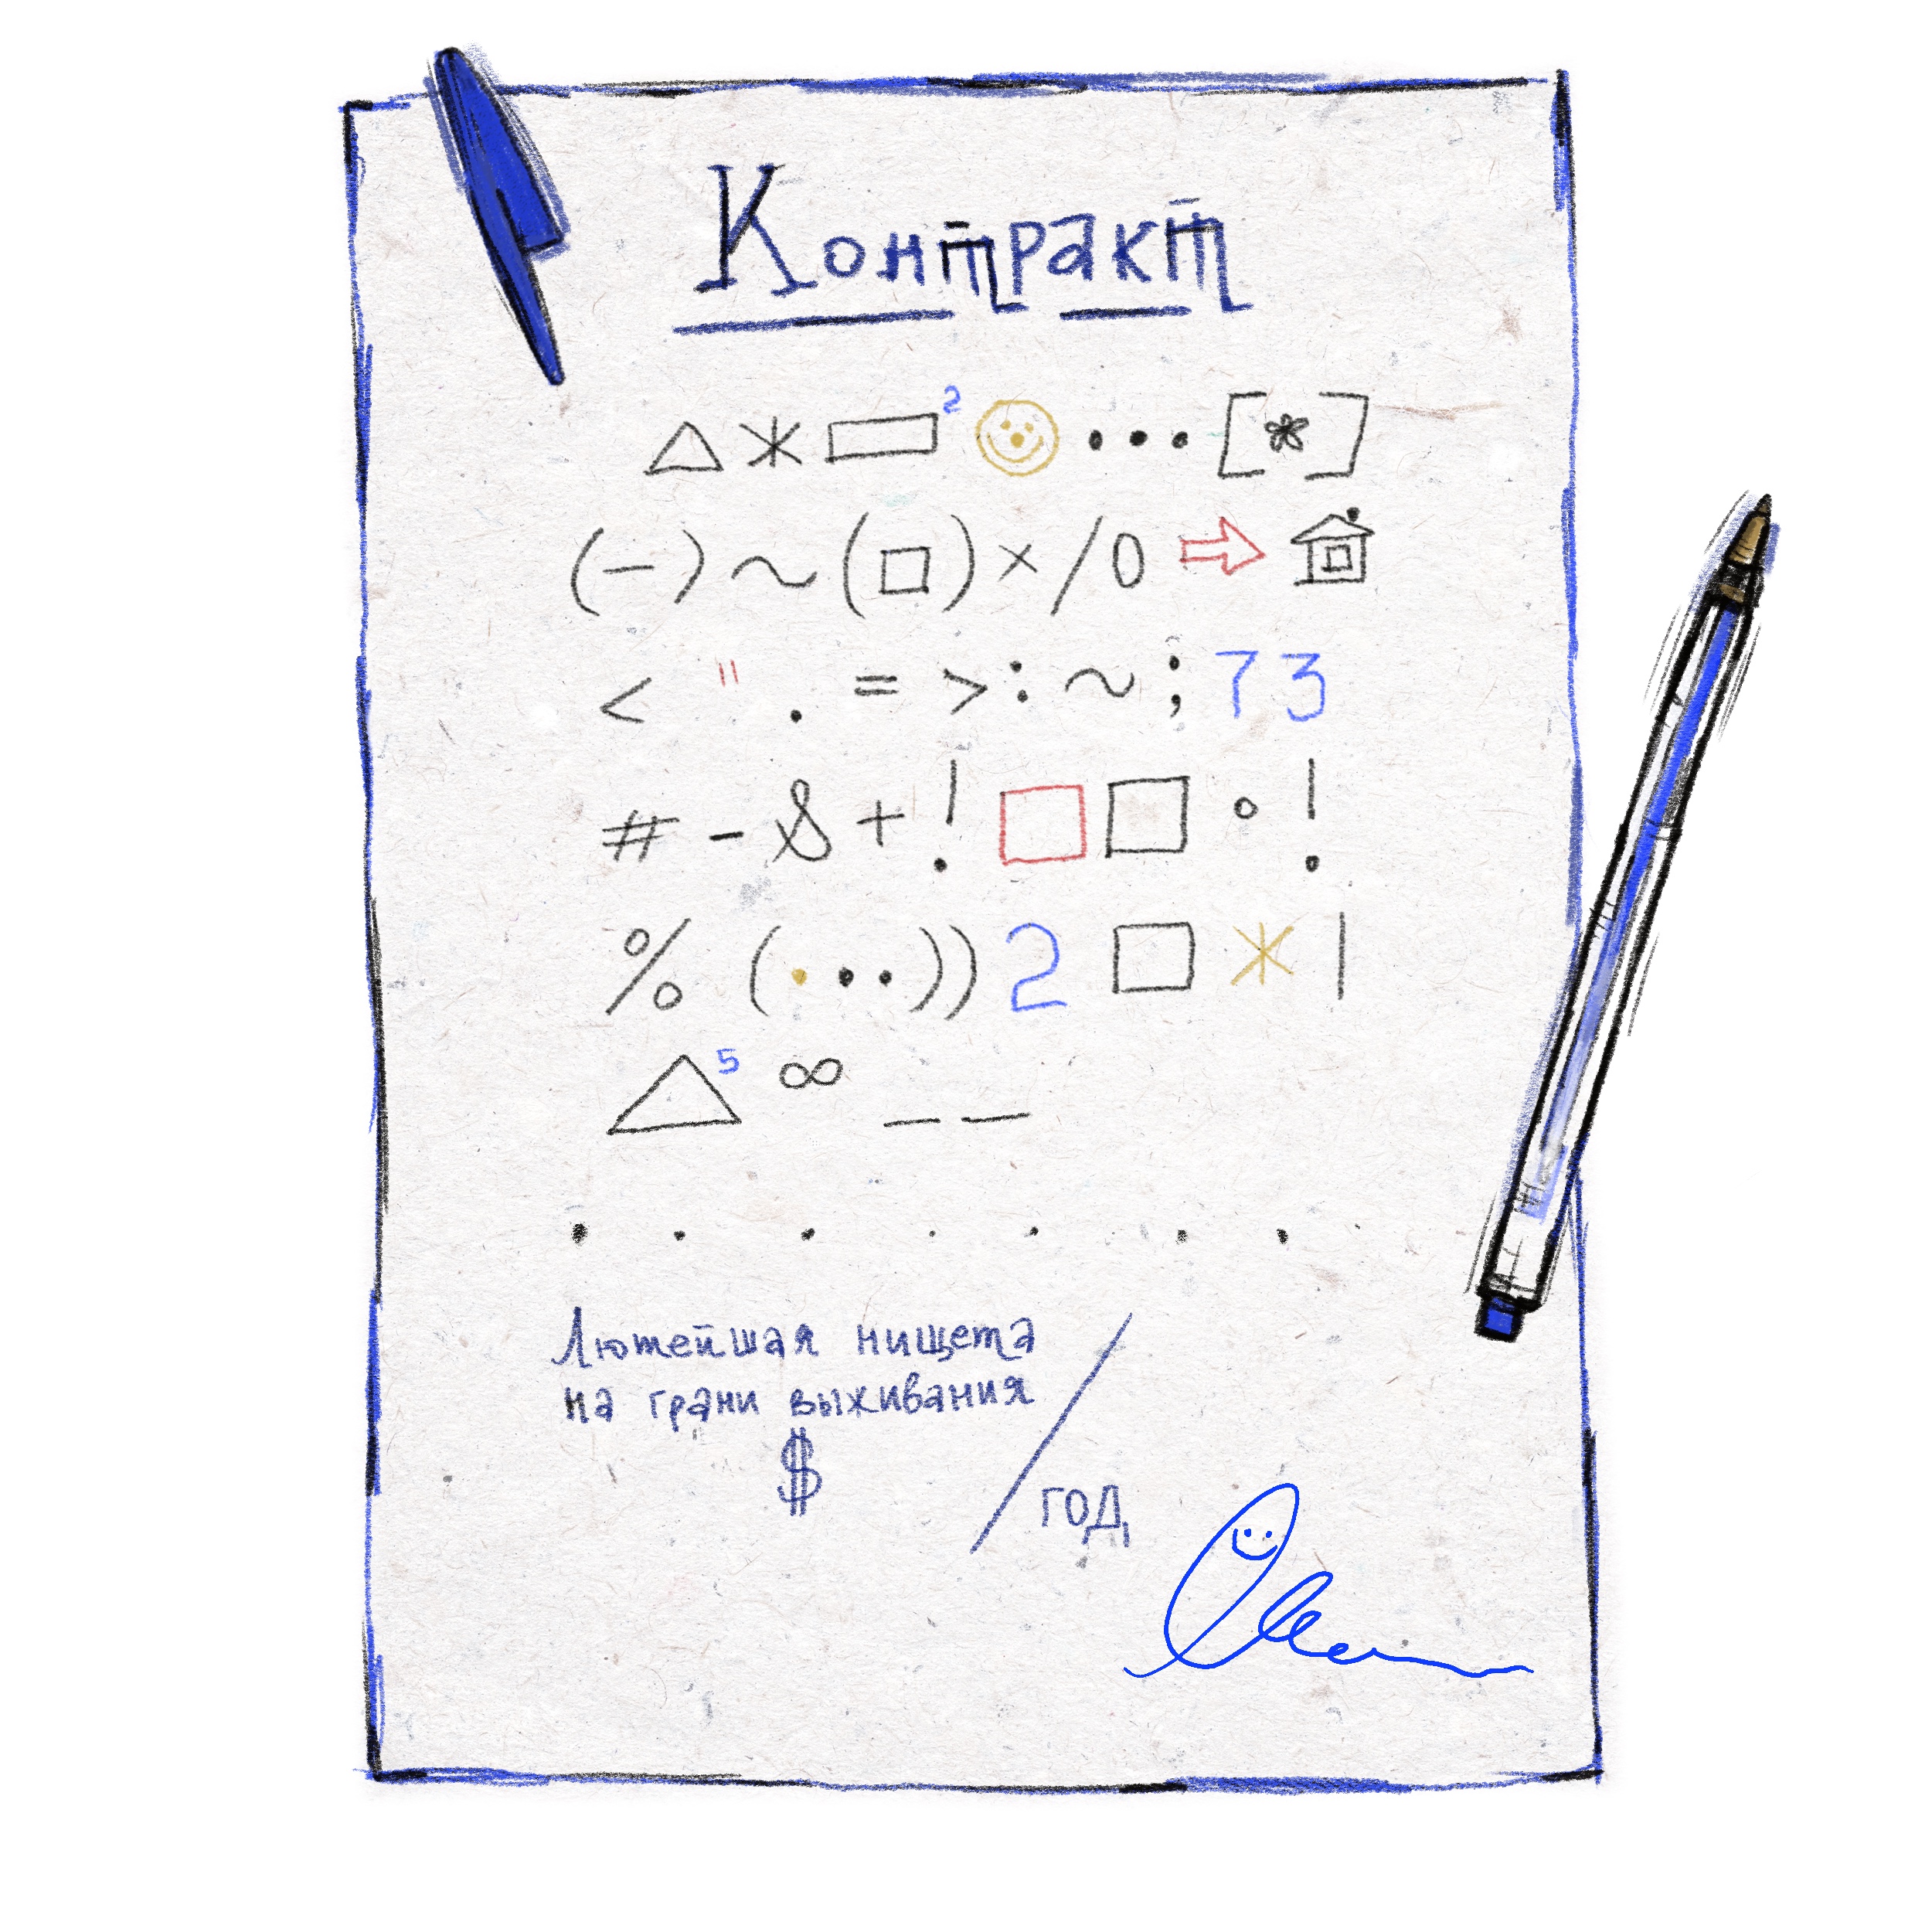 Контракт
△ * ▭² ☺ • • • [*]
(-) ~ (□) × / 0 ⇨ 🏠
< " . = > : ~ ; 73
# - & + ! □ □ ° !
% (• • •)) 2 □ * |
△⁵ ∞ _ _
. . . . . . .
Лютейшая нищета
на грани выживания
$ / год